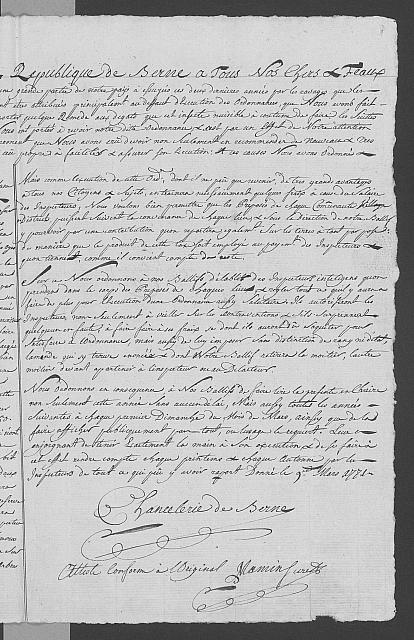 Republique de Berne a Tous Nos Chers & Feaux
une grande partie de notre pays a essuyes ces deux dernieres années par les ravages que les
ont été attribués principalement au deffaut d'execution des Ordonnances que Nous avons fait
porter quelque Remede aux degats que cet insecte nuisible a coutume de faire des Suittes
Nous ont portés à revoir notre dite Ordonnance & c'est par un effet de Notre attention
que Nous avons crû devoir non seulement en recommander de Nouveau & tres
propre a faciliter & assurer son Execution: A ces causes Nous avons Ordonné
Mais comme l'execution de cette Ord. dont il ne peut que revenir de tres grand avantages
à tous nos Citoyens & Sujets, entrainera peut quelques fraix à cause du Salaire
des Inspecteurs; Nous voulons bien permettre que les Preposés de chaque Communauté Village
District puissent suivant la convenance de chaque lieu & sous la Direction de notre Baillif
pourvoir par une contribution qu'on repartira egalement Sur les terres à tant par pose
de maniere que le produit de cette taxe soit employé au payement des Inspecteurs &
qu'on tienne comme il convient compte du reste.
Sur ce Nous ordonnons à nos Baillifs d'établir des Inspecteurs intelligens qu'on
prendra dans le corps des Preposés de chaque lieu & regler tout ce qu'il y aura
faire de plus pour l'Execution d'une Ordonnance aussy Salutaire. Ils autoriseront les
Inspecteurs non seulement à veiller Sur les contraventions & s'ils Surprennent
quelqu'un en faute, à faire à ses fraix ce dont ils auront dû s'aquitter pour
Satisfaire à l'Ordonnance, mais aussy de luy imposer Sans distinction de rang ou d'état
l'amande qui sy trouve enoncée & dont Notre Baillif retirera la moitié, l'autre
moitié devant appartenir à l'inspecteur ou au Delateur.
Nous Ordonnons en consequence à Nos Baillifs de faire lire les presentes en Chaire
non seulement cette année Sans aucun delai, Mais aussy toutes les années
Suivantes à chaque premier Dimanche du Mois de Mars, ainsy que de les
faire afficher publiquement par tout, ou l'usage le requiert. Leur
enjoignant de tenir exactement la main à son execution & de se faire à
cet effet rendre compte chaque printems & chaque automne par les
Inspecteurs de tout ce qui peut y avoir raport. Donné le 9e Mars 1771
Chancelerie de Berne
Attesté conforme à l'Original Mamin Curialh